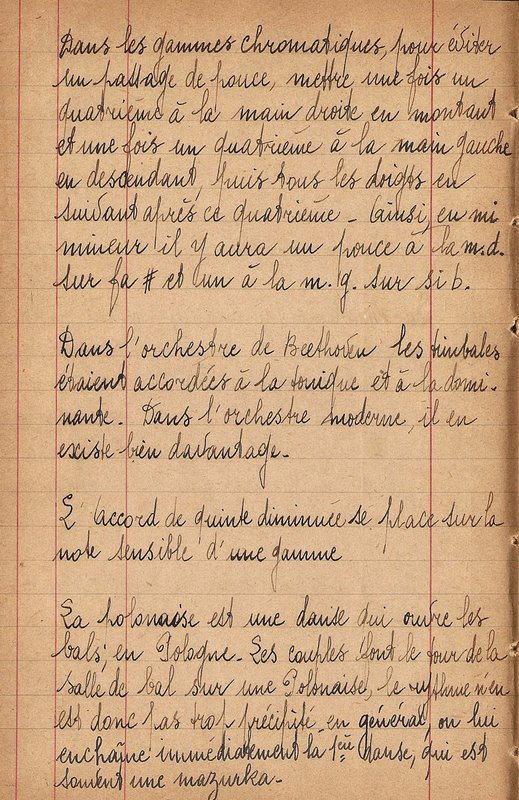 Dans les gammes chromatiques, pour éviter
un passage de pouce, mettre une fois un
quatrième à la main droite en montant
et une fois un quatrième à la main gauche
en descendant, puis tous les doigts en
suivant après ce quatrième - Ainsi, en mi
mineur il y aura un pouce à la m.d.
sur fa # et un à la m. g. sur si b.
Dans l'orchestre de Beethoven les timbales
étaient accordées à la tonique et à la domi-
nante. Dans l'orchestre moderne, il en
existe bien davantage.
L'accord de quinte diminuée se place sur la
note sensible d'une gamme
La polonaise est une danse qui ouvre les
bals, en Pologne. Les couples font le tour de la
salle de bal sur une Polonaise, le rythme n'en
est donc pas trop précipité, en général, on lui
enchaîne immédiatement la 1ère danse, qui est
souvent une mazurka.